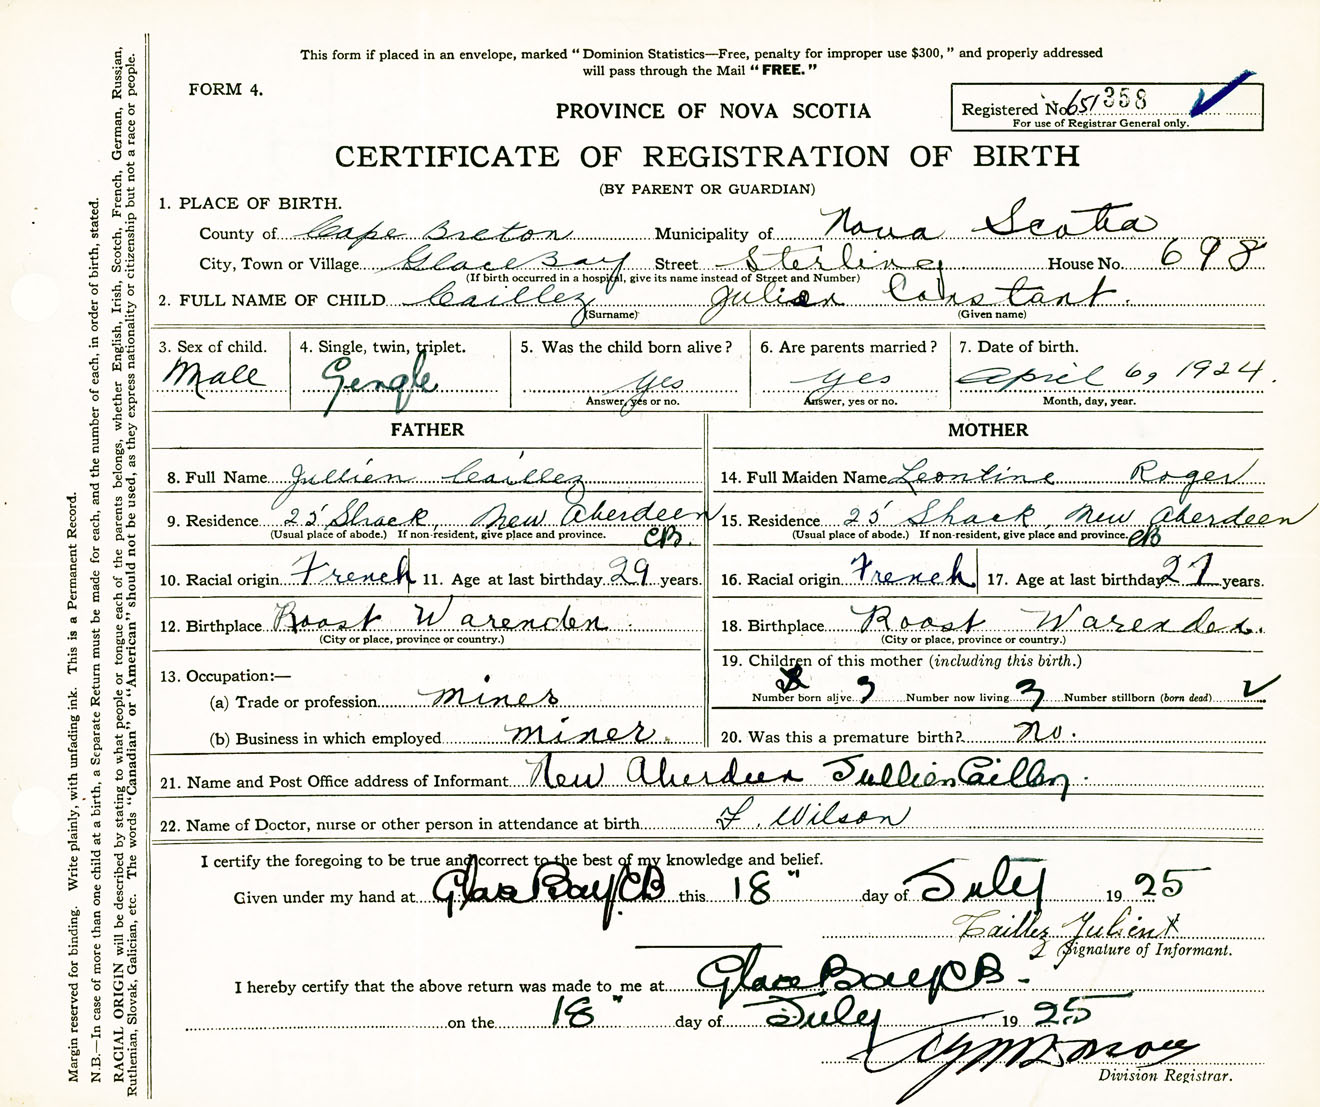 This form if placed in an envelope, marked "Dominion Statistics—Free, penalty for improper use $300," and properly addressed
will pass through the Mail "FREE."
FORM 4.
PROVINCE OF NOVA SCOTIA
Registered No. 651358
For use of Registrar General only.
CERTIFICATE OF REGISTRATION OF BIRTH
(BY PARENT OR GUARDIAN)
1. PLACE OF BIRTH.
County of Cape Breton Municipality of Nova Scotia
City, Town or Village Glace Bay Street Sterling House No. 698
(If birth occurred in a hospital, give its name instead of Street and Number)
2. FULL NAME OF CHILD Caillez Julien Constant.
(Surname) (Given name)
3. Sex of child. 4. Single, twin, triplet. 5. Was the child born alive? 6. Are parents married? 7. Date of birth.
Male Gengle yes yes April 6, 1924.
Answer, yes or no. Answer, yes or no. Month, day, year.
FATHER MOTHER
8. Full Name Jullien Caillez 14. Full Maiden Name Leontine Roger
9. Residence 25 Shack, New Aberdeen 15. Residence 25 Shack, New Aberdeen
(Usual place of abode.) If non-resident, give place and province. CB. (Usual place of abode.) If non-resident, give place and province. CB
10. Racial origin French 11. Age at last birthday 29 years. 16. Racial origin French 17. Age at last birthday 27 years.
12. Birthplace Roost Warenden 18. Birthplace Roost Warenden.
(City or place, province or country.) (City or place, province or country.)
13. Occupation:— 19. Children of this mother (including this birth.)
(a) Trade or profession miner Number born alive 3 Number now living 3 Number stillborn (born dead)
(b) Business in which employed miner. 20. Was this a premature birth? no.
21. Name and Post Office address of Informant New Aberdeen Jullien Caillez.
22. Name of Doctor, nurse or other person in attendance at birth F. Wilson
I certify the foregoing to be true and correct to the best of my knowledge and belief.
Given under my hand at Glace Bay CB this 18" day of July 1925
Caillez Julien
Signature of Informant.
I hereby certify that the above return was made to me at Glace Bay CB.
on the 18" day of July 1925
Division Registrar.
Margin reserved for binding. Write plainly, with unfading ink. This is a Permanent Record.
N.B.—In case of more than one child at a birth, a Separate Return must be made for each, and the number of each, in order of birth, stated.
RACIAL ORIGIN will be described by stating to what people or tongue each of the parents belongs, whether English, Irish, Scotch, French, German, Russian,
Ruthenian, Slovak, Galician, etc. The words "Canadian" or "American" should not be used, as they express nationality or citizenship but not a race or people.